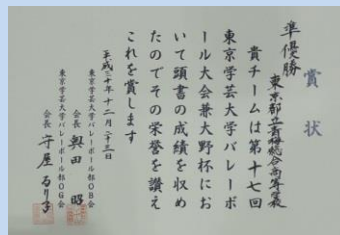 賞状
準優勝
東京都立青梅総合高等学校
貴チームは第十七回
東京学芸大学バレーボ
ール大会兼大野杯にお
いて頭書の成績を収め
たのでその栄誉を讃え
これを賞します
平成三十年十二月二十三日
東京学芸大学バレーボール部OB会
会長 奥田 昭
東京学芸大学バレーボール部OG会
会長 守屋 るり子